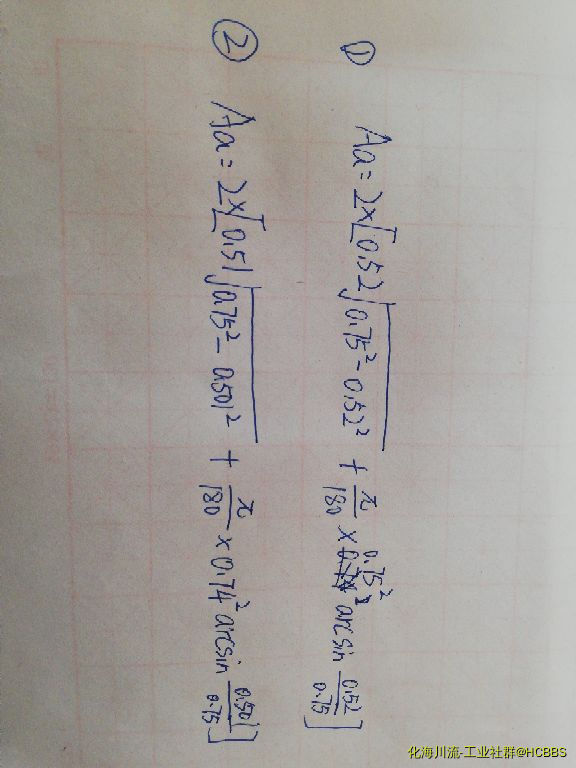 ① Aa = 2×[0.52√(0.75² - 0.52²) + π/180 × 0.75² arcsin 0.52/0.75]
② Aa = 2×[0.51√(0.75² - 0.501²) + π/180 × 0.74² arcsin 0.501/0.75]
化海川流-工业社群@HCBBS